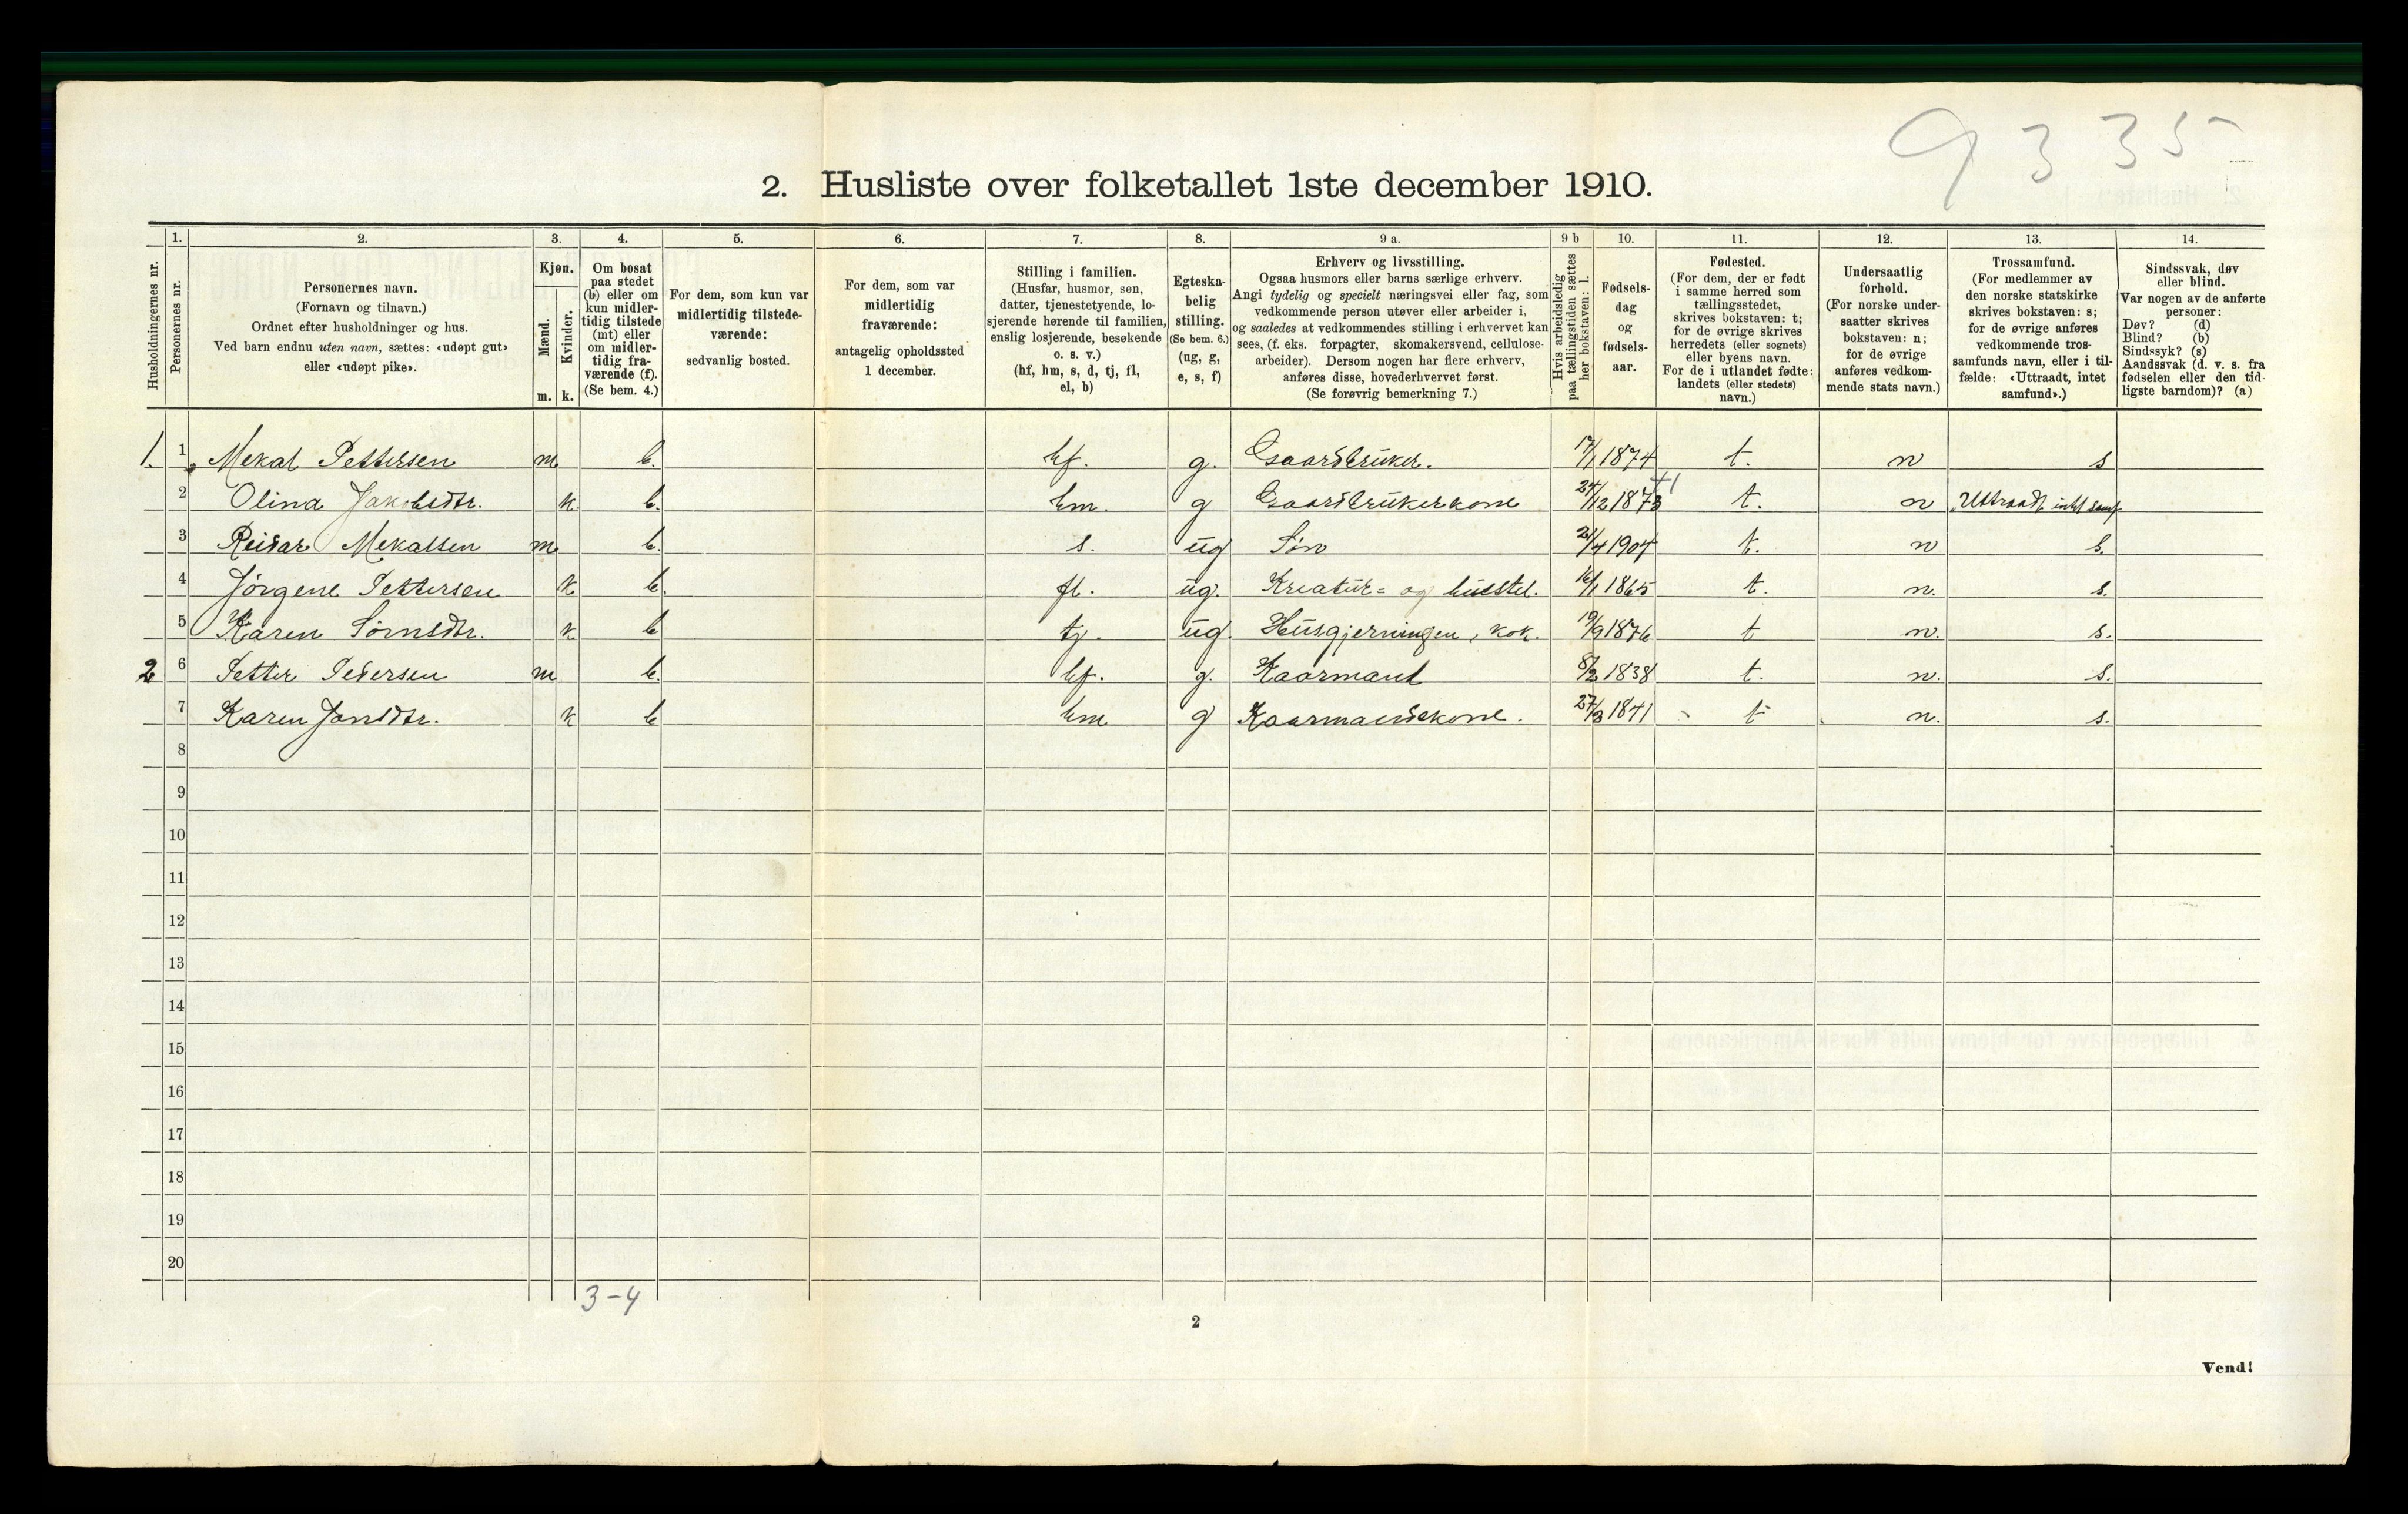 9335
2. Husliste over folketallet 1ste december 1910.
Husholdningernes nr.
1. Personernes nr.
2. Personernes navn.
(Fornavn og tilnavn.)
Ordnet efter husholdninger og hus.
Ved barn endnu uten navn, sættes: «udøpt gut»
eller «udøpt pike».
3. Kjøn.
Mænd. Kvinder.
m. k.
4. Om bosat
paa stedet
(b) eller om
kun midler-
tidig tilstede
(mt) eller
om midler-
tidig fra-
værende (f).
(Se bem. 4.)
5. For dem, som kun var
midlertidig tilstede-
værende:
sedvanlig bosted.
6. For dem, som var
midlertidig
fraværende:
antagelig opholdssted
1 december.
7. Stilling i familien.
(Husfar, husmor, søn,
datter, tjenestetyende, lo-
sjerende hørende til familien,
enslig losjerende, besøkende
o. s. v.)
(hf, hm, s, d, tj, fl,
el, b)
8. Egteska-
belig
stilling.
(Se bem. 6.)
(ug, g,
e, s, f)
9 a. Erhverv og livsstilling.
Ogsaa husmors eller barns særlige erhverv.
Angi tydelig og specielt næringsvei eller fag, som
vedkommende person utøver eller arbeider i,
og saaledes at vedkommendes stilling i erhvervet kan
sees, (f. eks. forpagter, skomakersvend, cellulose-
arbeider). Dersom nogen har flere erhverv,
anføres disse, hovederhvervet først.
(Se forøvrig bemerkning 7.)
9 b Hvis arbeidsledig
paa tællingstiden sættes
her bokstaven: l.
10. Fødsels-
dag
og
fødsels-
aar.
11. Fødested.
(For dem, der er født
i samme herred som
tællingsstedet,
skrives bokstaven: t;
for de øvrige skrives
herredets (eller sognets)
eller byens navn.
For de i utlandet fødte:
landets (eller stedets)
navn.)
12. Undersaatlig
forhold.
(For norske under-
saatter skrives
bokstaven: n;
for de øvrige
anføres vedkom-
mende stats navn.)
13. Trossamfund.
(For medlemmer av
den norske statskirke
skrives bokstaven: s;
for de øvrige anføres
vedkommende tros-
samfunds navn, eller i til-
fælde: «Uttraadt, intet
samfund».)
14. Sindssvak, døv
eller blind.
Var nogen av de anførte
personer:
Døv? (d)
Blind? (b)
Sindssyk? (s)
Aandssvak (d. v. s. fra
fødselen eller den tid-
ligste barndom)? (a)
1. 1 Mekal Pettersen m b. hf. g. Gaardbruker. 17/1 1874 t. n s
2 Olina Jakobsdtr. k. b. hm. g Gaardbrukerkone 24/12 1873 t. n Uttraadt intet samf
3 Reidar Mekalsen m b. s. ug Søn 21/4 1904 t. n s.
4 Jørgene Pettersen k b. fl. ug. Kreatur= og husstel. 16/1 1865 t. n. s.
5 Karen Sørnsdtr. k b tj. ug. Husgjerningen, kok. 19/9 1876 t n. s.
2 6 Petter Pedersen m b. hf. g. Kaarmand 8/2 1838 t. n. s.
7 Karen Jonsdtr. k b hm g Kaarmandskone. 27/3 1841 t n. s.
8
9
10
11
12
13
14
15
16
17
18
19
20
3-4
2
Vend!